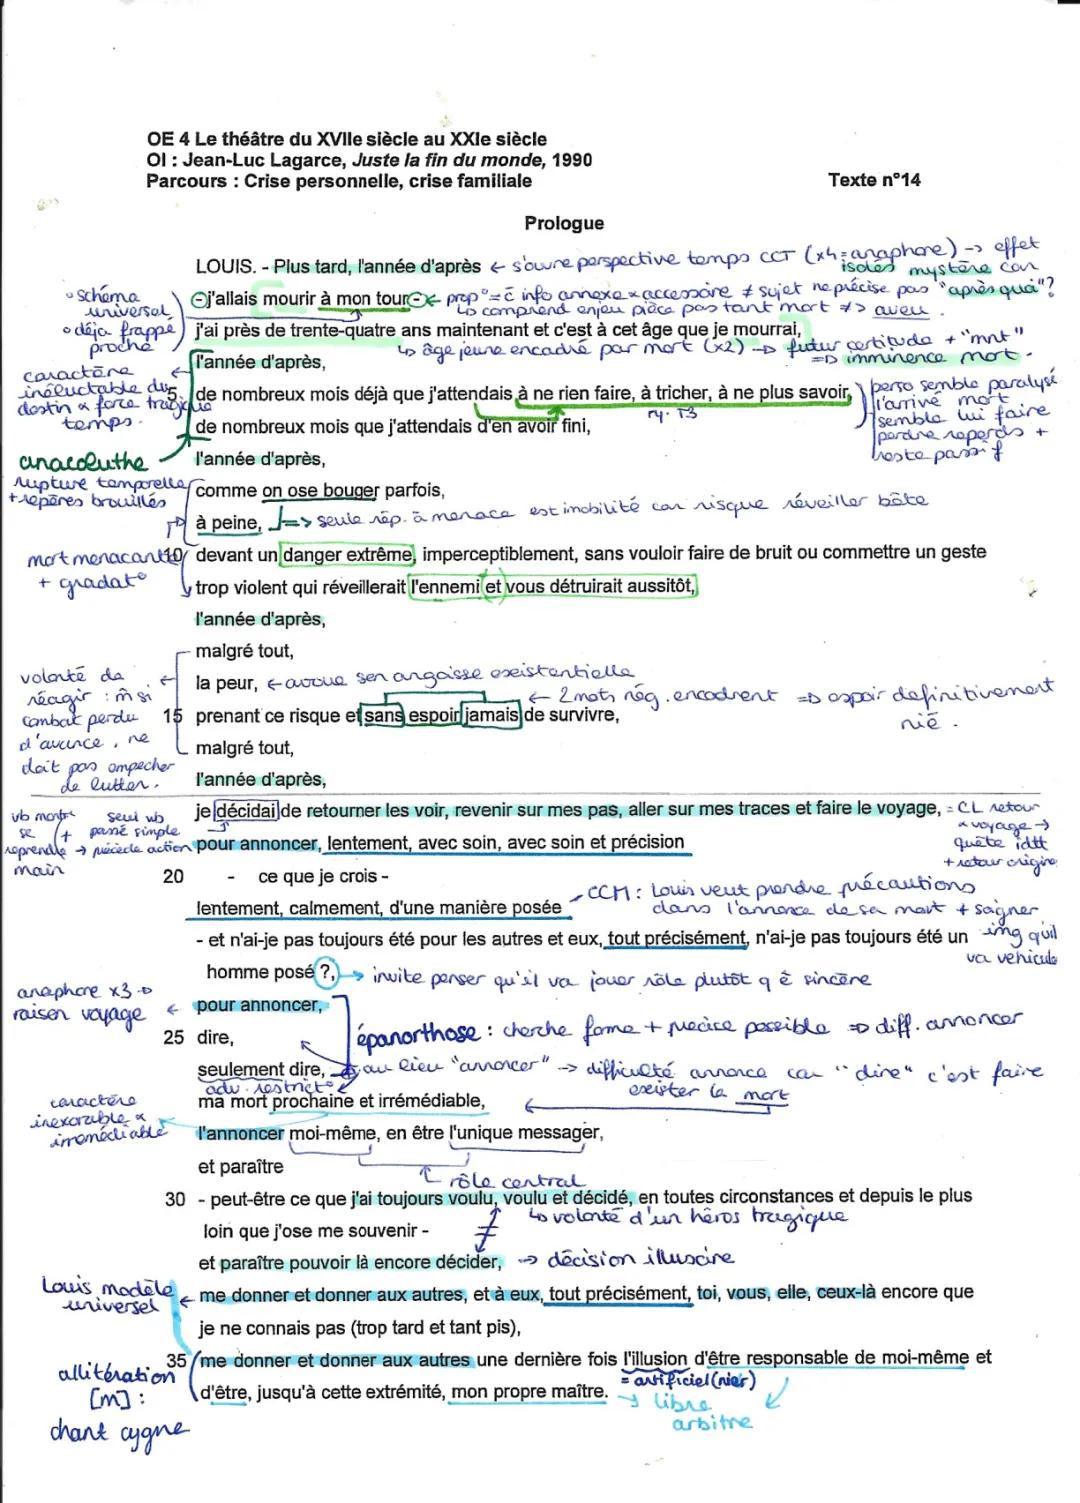 OE 4 Le théâtre du XVIIe siècle au XXIe siècle
OI : Jean-Luc Lagarce, Juste la fin du monde, 1990
Parcours : Crise personnelle, crise familiale
Texte n°14
Prologue
LOUIS. - Plus tard, l'année d'après ← s'ouvre perspective temps CCT (x4 = anaphore) → effet
isolés mystère car
° schéma universel
° déja frappé proche
- j'allais mourir à mon tour - ← prop° = c̄ info annexe & accessoire ≠ sujet ne précise pas "après quoi"?
↳ comprend enjeu pièce pas tant mort ≠> aveu.
j'ai près de trente-quatre ans maintenant et c'est à cet âge que je mourrai,
↳ âge jeune encadré par mort (x2) → futur certitude + "mnt"
=> imminence mort.
l'année d'après,
caractère inéluctable du destin & force tragique temps.
5 de nombreux mois déjà que j'attendais à ne rien faire, à tricher, à ne plus savoir,
ry. T3
perso semble paralysé
l'arrivé mort
semble lui faire
perdre repères +
reste passif
de nombreux mois que j'attendais d'en avoir fini,
anacoluthe
l'année d'après,
rupture temporelle
+ repères brouillés
comme on ose bouger parfois,
à peine, => seule rép. à menace est imobilité car risque réveiller bête
mort menacante
+ gradat°
10 devant un danger extrême, imperceptiblement, sans vouloir faire de bruit ou commettre un geste
trop violent qui réveillerait l'ennemi et vous détruirait aussitôt,
l'année d'après,
malgré tout,
volonté de
réagir : m̂ si
combat perdu
d'avance, ne
doit pas empecher
de lutter.
la peur, ← avoue son angoisse existentielle
← 2 mots nég. encadrent => espoir definitivement
nié.
15 prenant ce risque et sans espoir jamais de survivre,
malgré tout,
l'année d'après,
je décidai de retourner les voir, revenir sur mes pas, aller sur mes traces et faire le voyage, = CL retour
& voyage →
quête idtt
+ retour origine
vb montre
se
reprendre
main
+ seul vb
passé simple
→ précède action
pour annoncer, lentement, avec soin, avec soin et précision
20 - ce que je crois -
lentement, calmement, d'une manière posée
CCM : Louis veut prendre précautions
dans l'annonce de sa mort + soigner
img qu'il
va véhiculé
- et n'ai-je pas toujours été pour les autres et eux, tout précisément, n'ai-je pas toujours été un
homme posé ?, → invite penser qu'il va jouer rôle plutôt q ê sincère
anaphore x3 →
raison voyage
← pour annoncer,
25 dire,
épanorthose : cherche forme + précise possible => diff. annoncer
seulement dire, → au lieu "annoncer" → difficulté annonce car "dire" c'est faire
exister la mort
adv. restrict°
ma mort prochaine et irrémédiable,
caractère
inexorable &
irremédiable
l'annoncer moi-même, en être l'unique messager,
et paraître
rôle central
30 - peut-être ce que j'ai toujours voulu, voulu et décidé, en toutes circonstances et depuis le plus
↳ volonté d'un héros tragique
loin que j'ose me souvenir -
≠
et paraître pouvoir là encore décider, → décision illusoire
Louis modèle
universel
← me donner et donner aux autres, et à eux, tout précisément, toi, vous, elle, ceux-là encore que
je ne connais pas (trop tard et tant pis),
35 me donner et donner aux autres une dernière fois l'illusion d'être responsable de moi-même et
= artificiel (nier)
allitération
[m] :
chant cygne
d'être, jusqu'à cette extrémité, mon propre maître.
→ libre
arbitre